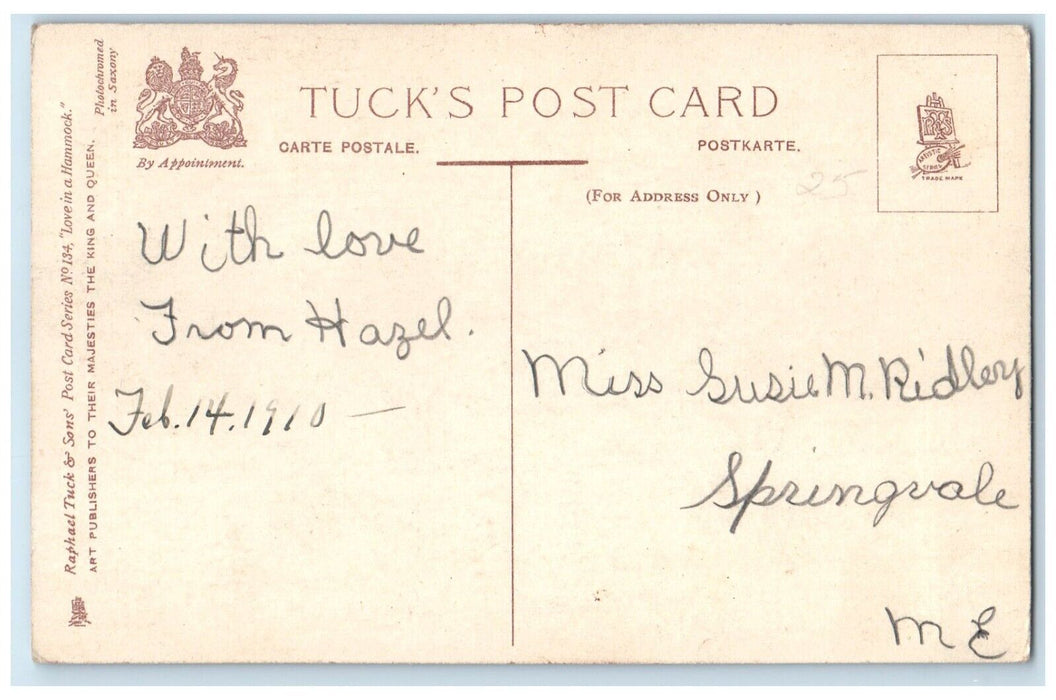 Raphael Tuck & Sons' Post Card Series Nº 134, "Love in a Hammock."
ART PUBLISHERS TO THEIR MAJESTIES THE KING AND QUEEN.
Photochromed
in Saxony
By Appointment.
TUCK'S POST CARD
CARTE POSTALE.
POSTKARTE.
(FOR ADDRESS ONLY)
25
TRADE MARK
With love
From Hazel.
Feb. 14. 1910 —
Miss Susie M. Ridley
Springvale
ME